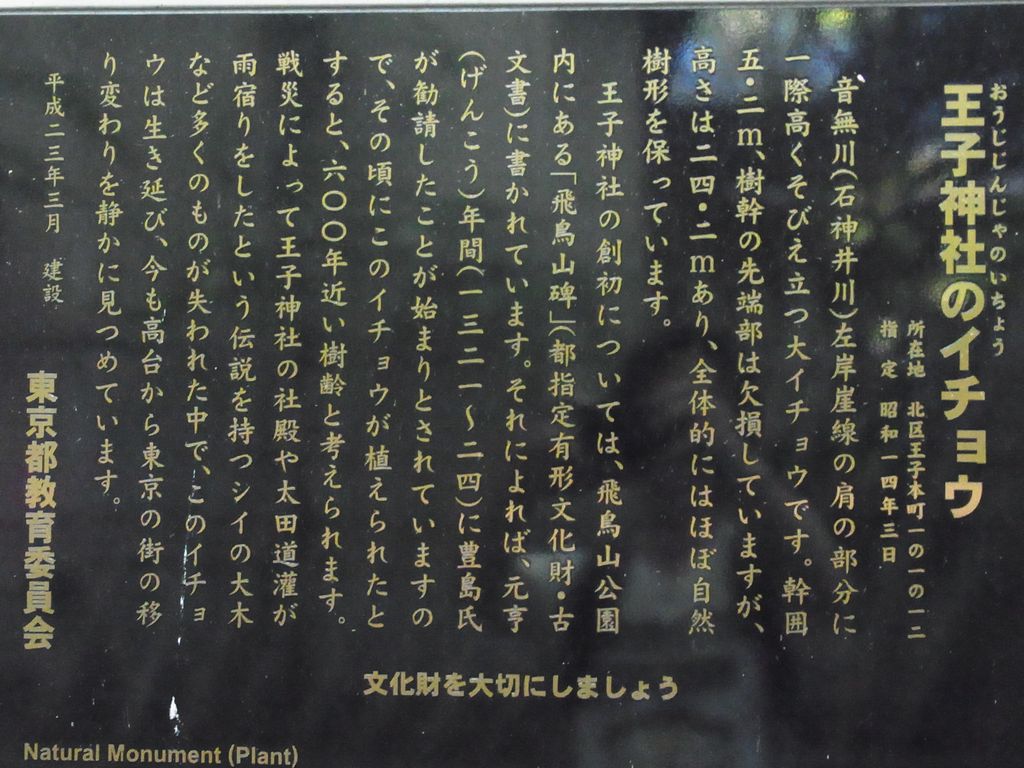 おうじじんじゃのいちょう
王子神社のイチョウ
所在地　北区王子本町一の一の一二
指　定　昭和一四年三日
音無川(石神井川)左岸崖線の肩の部分に
一際高くそびえ立つ大イチョウです。幹囲
五・二m、樹幹の先端部は欠損していますが、
高さは二四・二mあり、全体的にはほぼ自然
樹形を保っています。
王子神社の創初については、飛鳥山公園
内にある「飛鳥山碑」(都指定有形文化財・古
文書)に書かれています。それによれば、元亨
(げんこう)年間(一三二一〜二四)に豊島氏
が勧請したことが始まりとされていますの
で、その頃にこのイチョウが植えられたと
すると、六〇〇年近い樹齢と考えられます。
戦災によって王子神社の社殿や太田道灌が
雨宿りをしたという伝説を持つシイの大木
など多くのものが失われた中で、このイチョ
ウは生き延び、今も高台から東京の街の移
り変わりを静かに見つめています。
平成二三年三月　建設
東京都教育委員会
文化財を大切にしましょう
Natural Monument (Plant)